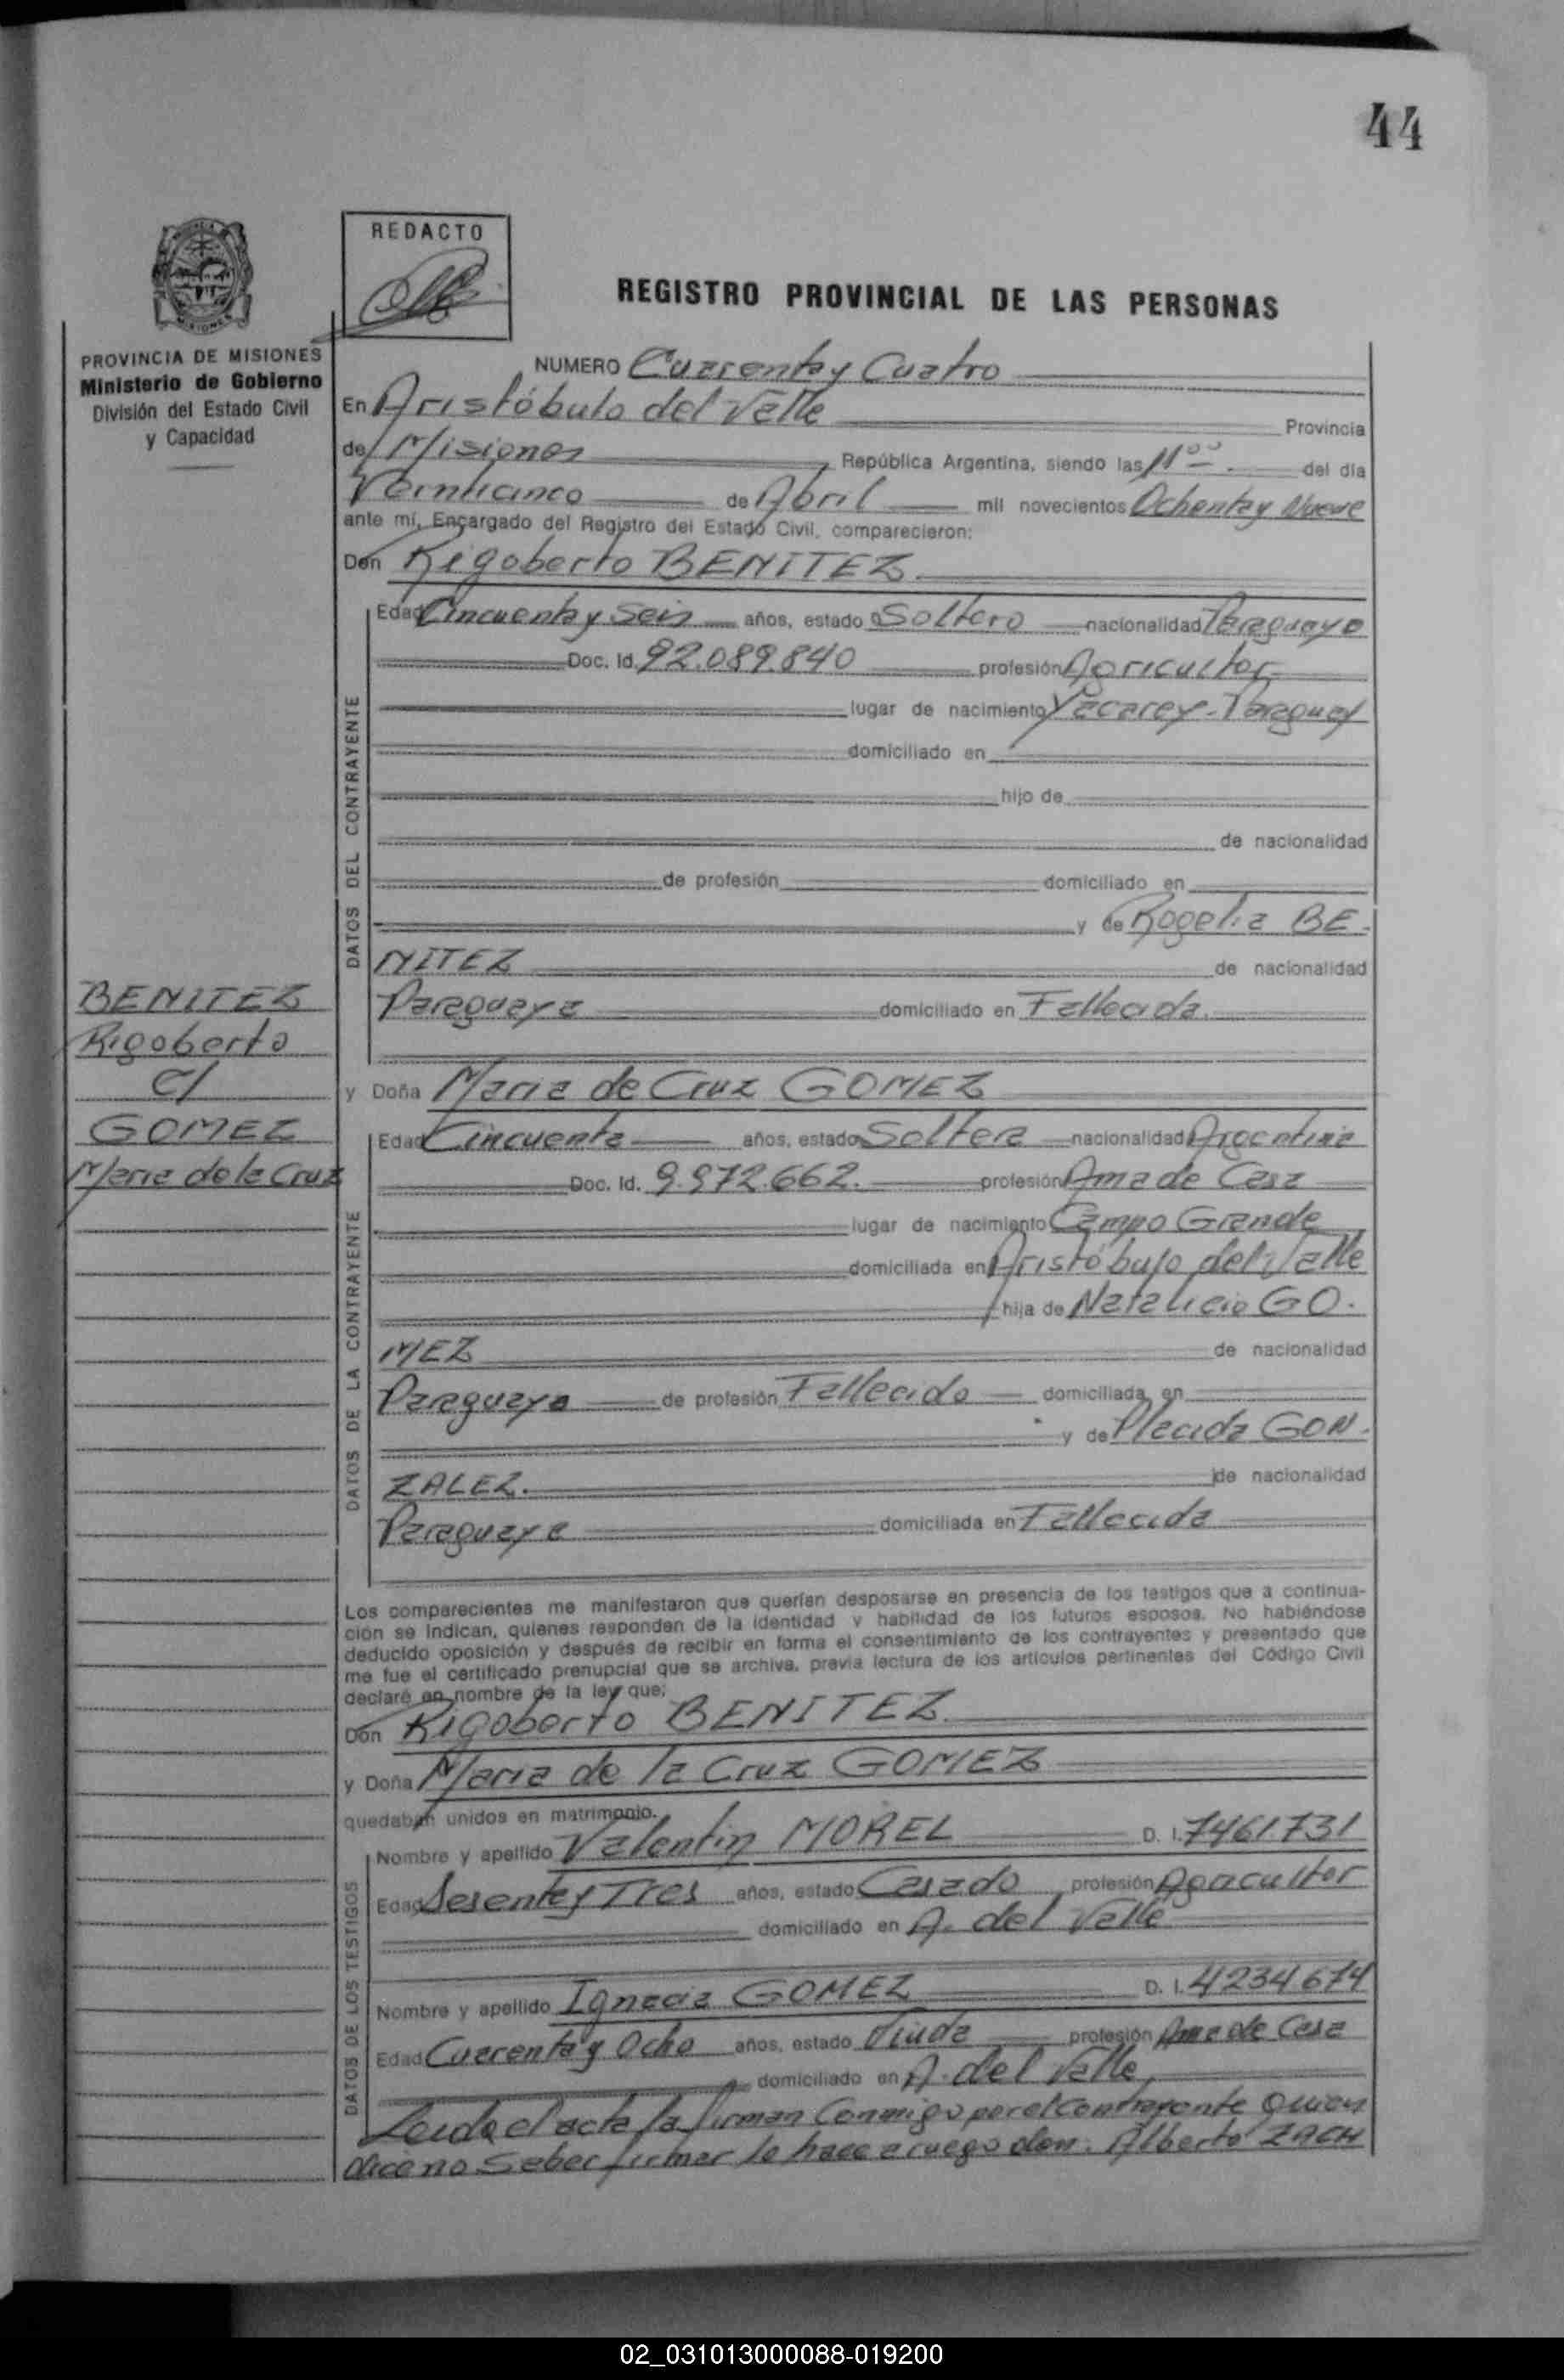 44
REDACTO
REGISTRO PROVINCIAL DE LAS PERSONAS
PROVINCIA DE MISIONES
Ministerio de Gobierno
División del Estado Civil
y Capacidad
NUMERO Cuarenta y Cuatro
En Aristóbulo del Valle Provincia
de Misiones República Argentina, siendo las 11 00 del día
Veinticinco de Abril mil novecientos Ochenta y Nueve
ante mí, Encargado del Registro del Estado Civil, comparecieron:
Don Rigoberto BENITEZ
DATOS DEL CONTRAYENTE
Edad Cincuenta y Seis años, estado Soltero nacionalidad Paraguayo
Doc. Id. 92.089.840 profesión Agricultor
lugar de nacimiento Yacarey - Paraguay
domiciliado en
hijo de
de nacionalidad
de profesión domiciliado en
y de Rogelia BE-
NITEZ de nacionalidad
Paraguaya domiciliado en Fallecida
BENITEZ
Rigoberto
C/
GOMEZ
Maria de la Cruz
y Doña Maria de Cruz GOMEZ
DATOS DE LA CONTRAYENTE
Edad Cincuenta años, estado Soltera nacionalidad Argentina
Doc. Id. 9.972.662. profesión Ama de Casa
lugar de nacimiento Campo Grande
domiciliada en Aristóbulo del Valle
hija de Natalicio GO-
MEZ de nacionalidad
Paraguaya de profesión Fallecido domiciliada en
y de Placida GON-
ZALEZ. de nacionalidad
Paraguaya domiciliada en Fallecida
Los comparecientes me manifestaron que querían desposarse en presencia de los testigos que a continua-
ción se indican, quienes responden de la identidad y habilidad de los futuros esposos. No habiéndose
deducido oposición y después de recibir en forma el consentimiento de los contrayentes y presentado que
me fue el certificado prenupcial que se archiva, previa lectura de los artículos pertinentes del Código Civil
declaré en nombre de la ley que:
Don Rigoberto BENITEZ
y Doña Maria de la Cruz GOMEZ
quedaban unidos en matrimonio.
DATOS DE LOS TESTIGOS
Nombre y apellido Valentin MOREL D. I. 7461.731
Edad Sesenta y Tres años, estado Casado profesión Agricultor
domiciliado en A. del Valle
Nombre y apellido Ignacia GOMEZ D. I. 4234674
Edad Cuarenta y Ocho años, estado Viuda profesión Ama de Casa
domiciliado en A. del Valle
Leida el acta la firman Conmigo por el Contrayente Quien
dice no Saber firmar lo hace a ruego don. Alberto ZACH
02_031013000088-019200